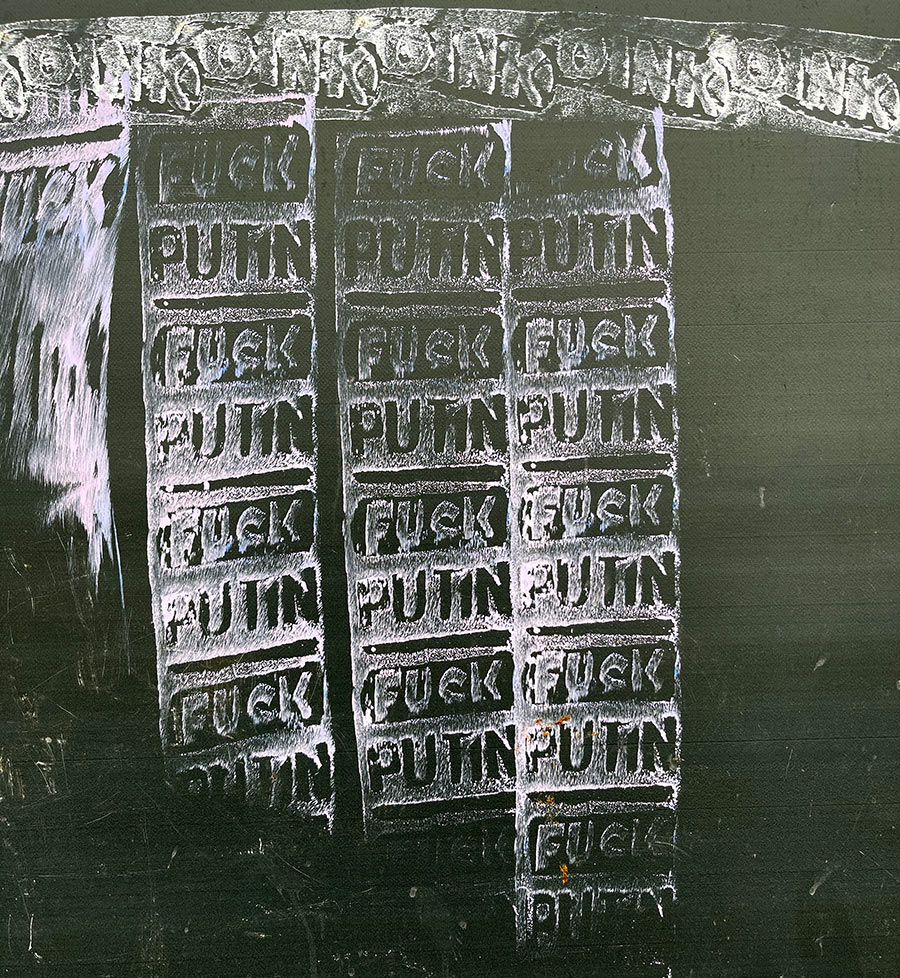 OINK OINK OINK OINK OINK
FUCK
PUTIN
FUCK
PUTIN
FUCK
PUTIN
FUCK
PUTIN
FUCK
PUTIN
FUCK
PUTIN
FUCK
PUTIN
FUCK
PUTIN
FUCK
FUCK
PUTIN
FUCK
PUTIN
FUCK
PUTIN
FUCK
PUTIN
FUCK
PUTIN